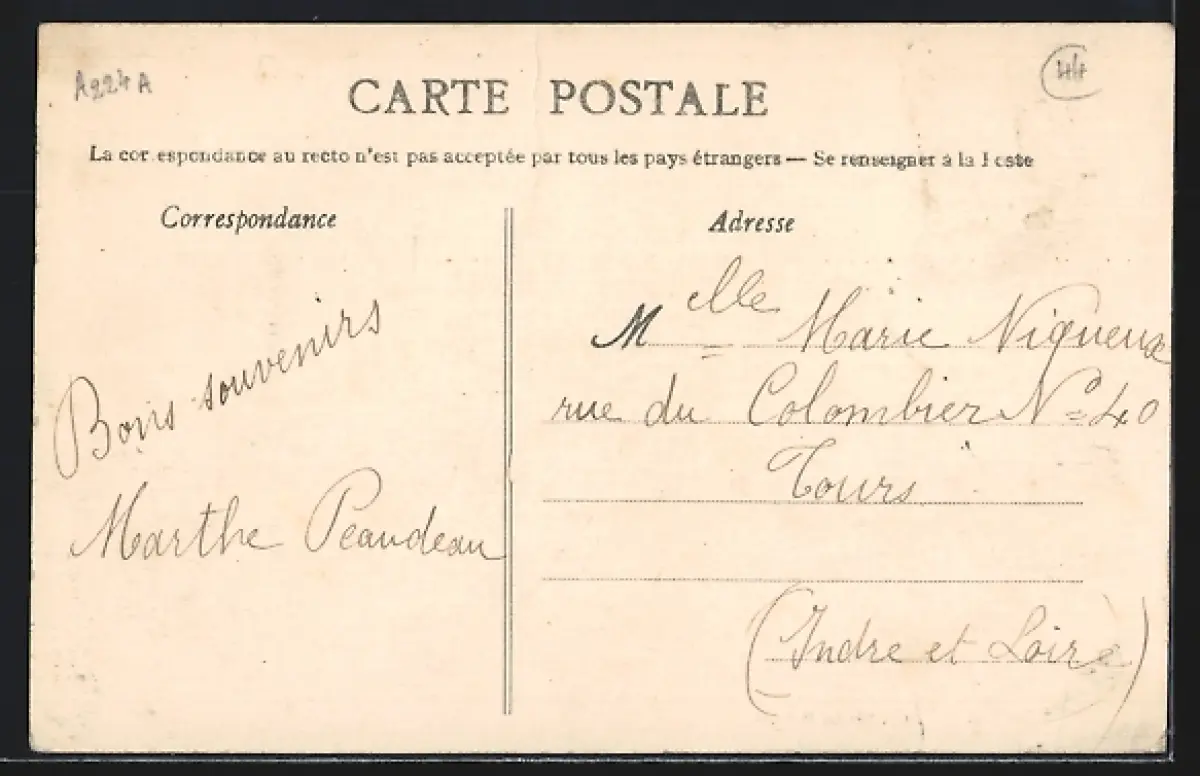 A224A
44
CARTE POSTALE
La correspondance au recto n'est pas acceptée par tous les pays étrangers — Se renseigner à la Poste
Correspondance
Bons souvenirs
Marthe Peaudeau
Adresse
Melle Marie Niqueux
rue du Colombier No 40
Tours
(Indre et Loire)